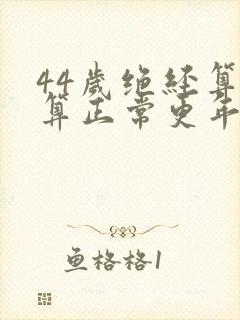 44岁绝经算
算正常更年
鱼格格1